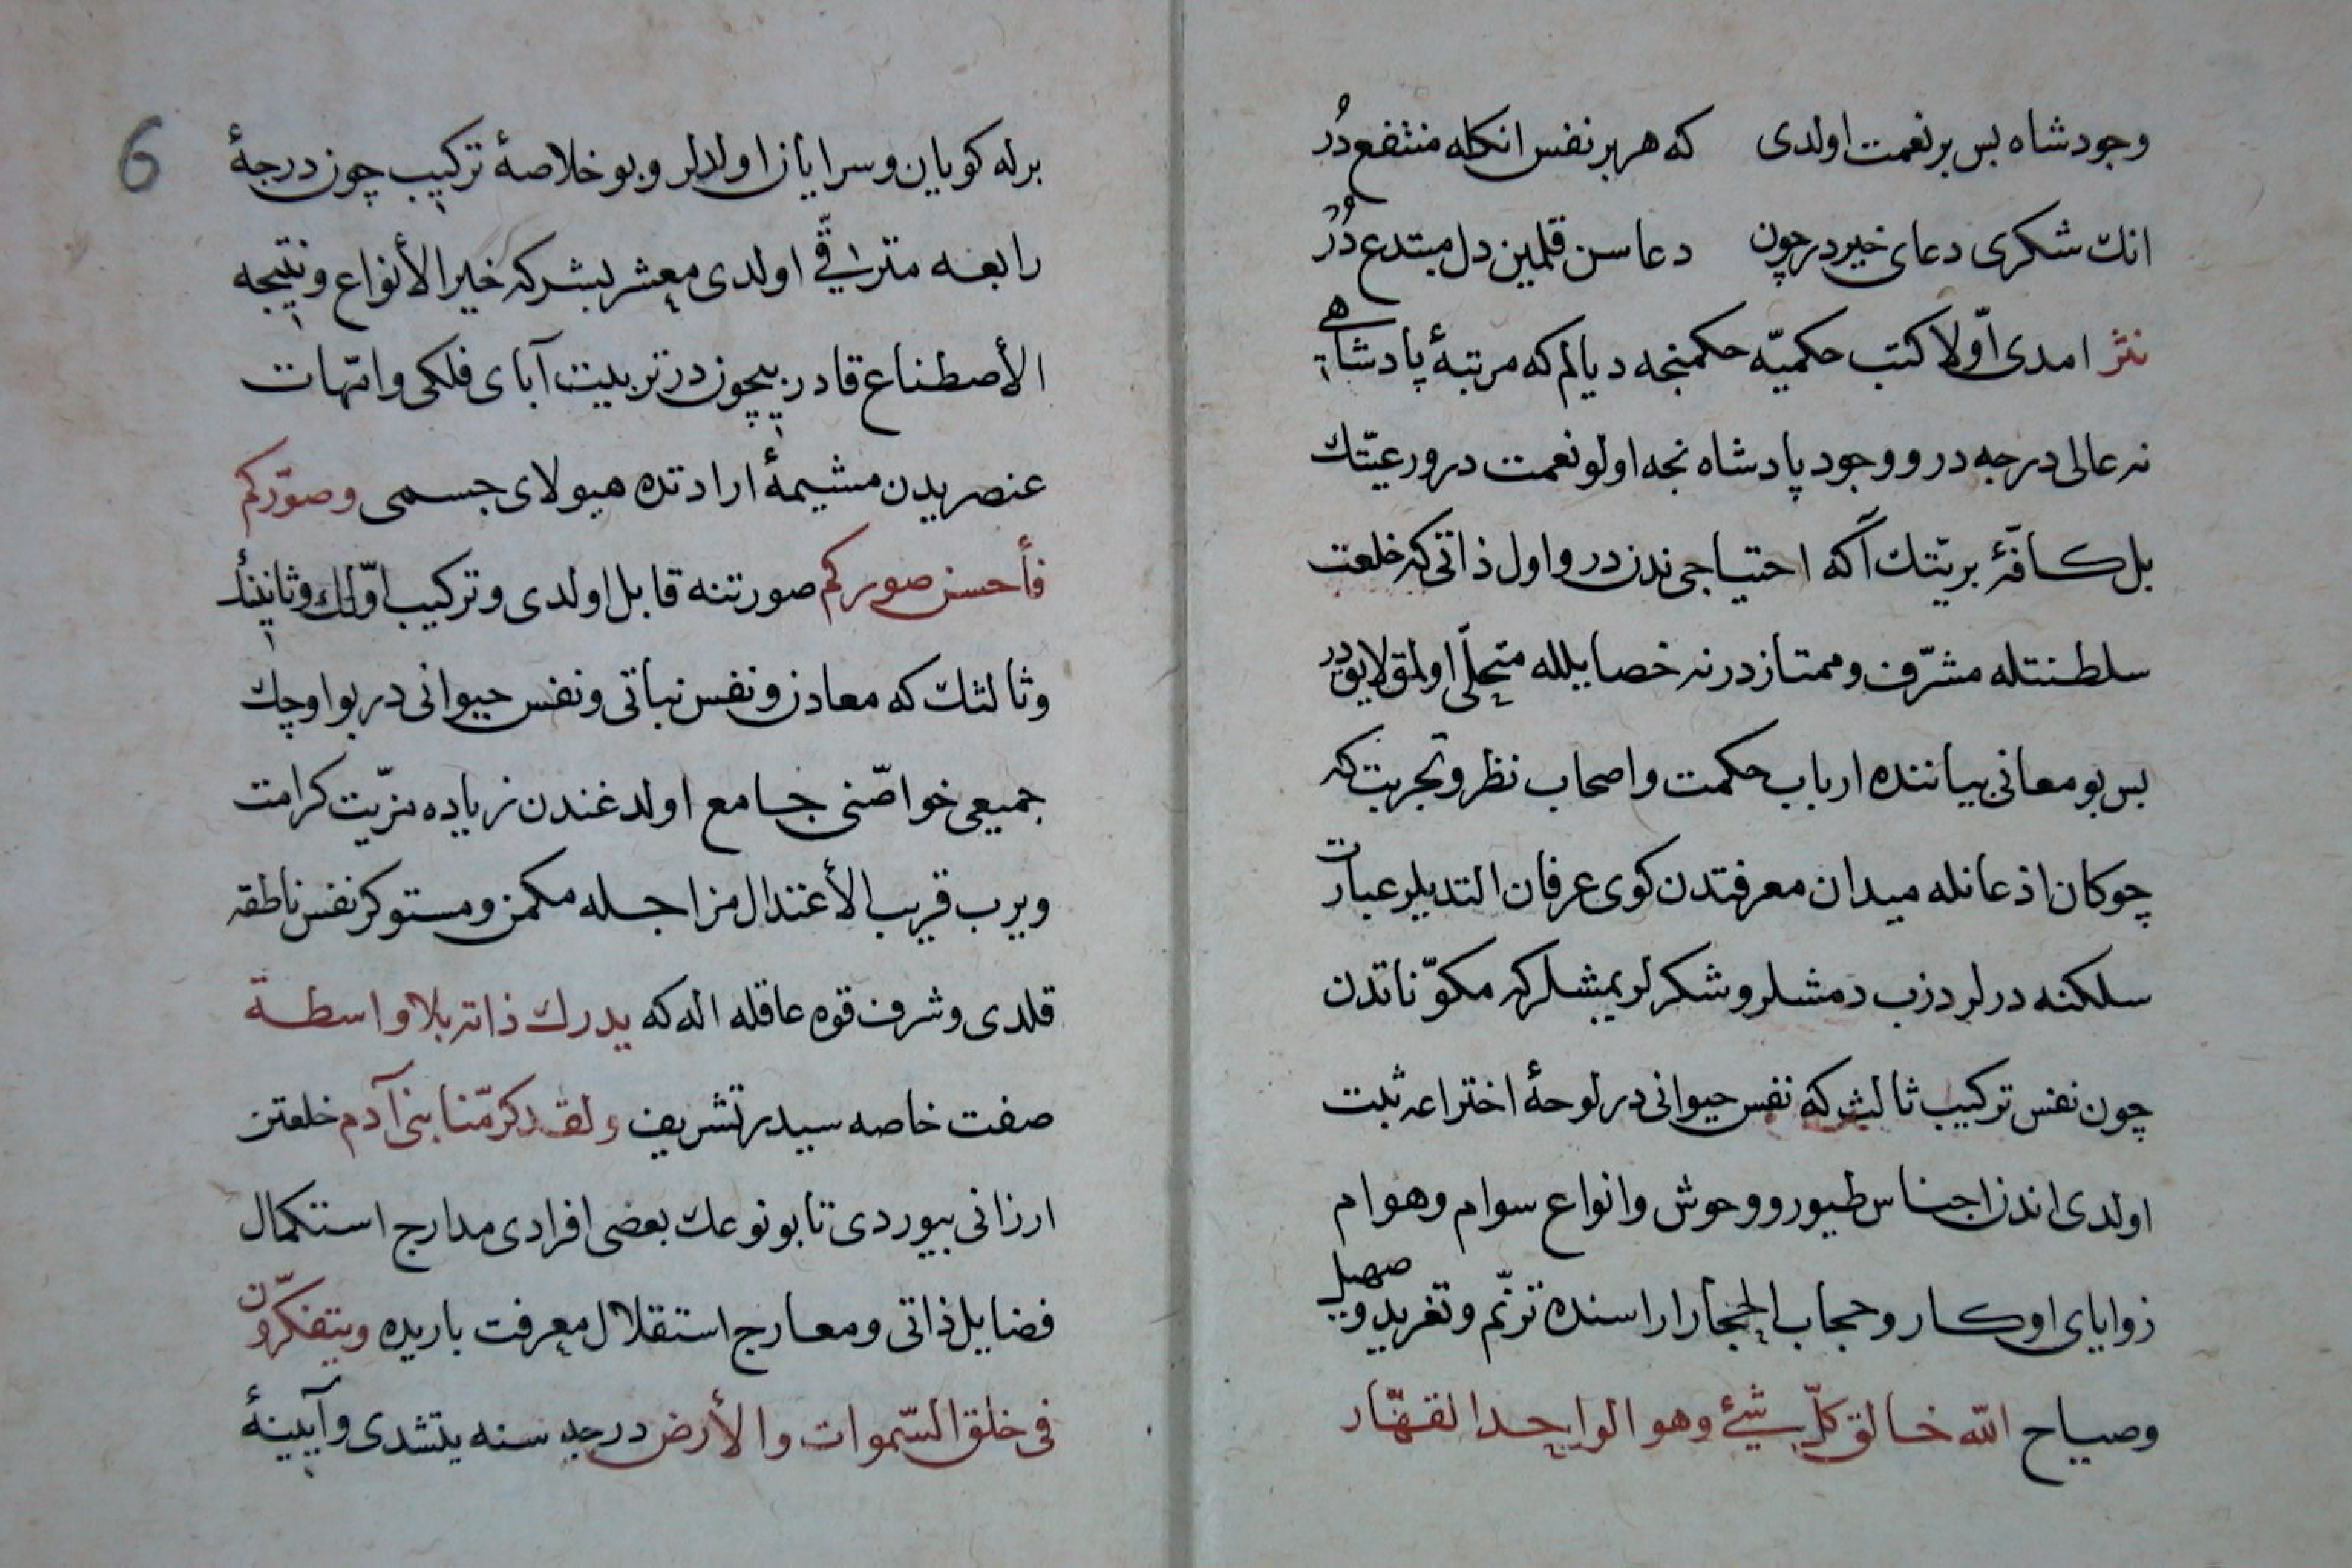 وجود شاه بس بر نعمت اولدی که هر بر نفس انکله منتفع دُر
انك شکری دعای خیر در چون دعاسن قلمین دل مبتدع دُرُ
نثر امدی اوّلا کتب حکمیّه حکمنجه دیالم که مرتبۀ پادشاهی
نه عالی درجه در و وجود پادشاه نجه اولو نعمت در و رعیّتك
بل کافّۀ بریّتك آکه احتیاجی ندن در و اول ذاتی که خلعت
سلطنتله مشرّف و ممتاز در نه خصایلله متحلّی اولمق لایق در
بس بو معانی بیاننده ارباب حکمت و اصحاب نظر و تجربت که
چوکان اذعانله میدان معرفتدن کوی عرفان التدیلر عبارات
سلکنه درلر دزب دمشلر و شکرلر یمشلر که مکوّناتدن
چون نفس ترکیب ثالث که نفس حیوانی در لوحۀ اختراعه ثبت
اولدی اندن اجناس طیور و وحوش و انواع سوام و هوام
زوایای اوکار و حجاب الحجار اراسنده ترنّم و تغرید و صهیل
و صیاح الله خالق کلّ شیٔ وهو الواحد القهّار
6
برله کویان و سرایان اولدلر و بو خلاصۀ ترکیب چون درجۀ
رابعه مترقّی اولدی معشر بشر که خیر الأنواع و نتیجه
الأصطناع قادر بیچون در تربیت آبای فلکی و امّهات
عنصریدن مشیمۀ ارادتده هیولای جسمی وصوّرکم
فأحسن صورکم صورتنه قابل اولدی و ترکیب اوّلك و ثانینك
و ثالثك که معادن و نفس نباتی و نفس حیوانی در بو اوچك
جمیعی خواصّنی جامع اولدغندن زیاده مزیّت کرامت
ویرب قریب الأعتدال مزاجله مکمن و مستوکر نفس ناطقه
قلدی و شرف قوه عاقله اله که یدرك ذاته بلا واسطة
صفت خاصه سیدر تشریف ولقد کرّمنا بنی آدم خلعتن
ارزانی بیوردی تا بو نوعك بعضی افرادی مدارج استکمال
فضایل ذاتی و معارج استقلال معرفت باریده ویتفکّرون
فی خلق السّموات والأرض درجه سنه یتشدی و آیینۀ